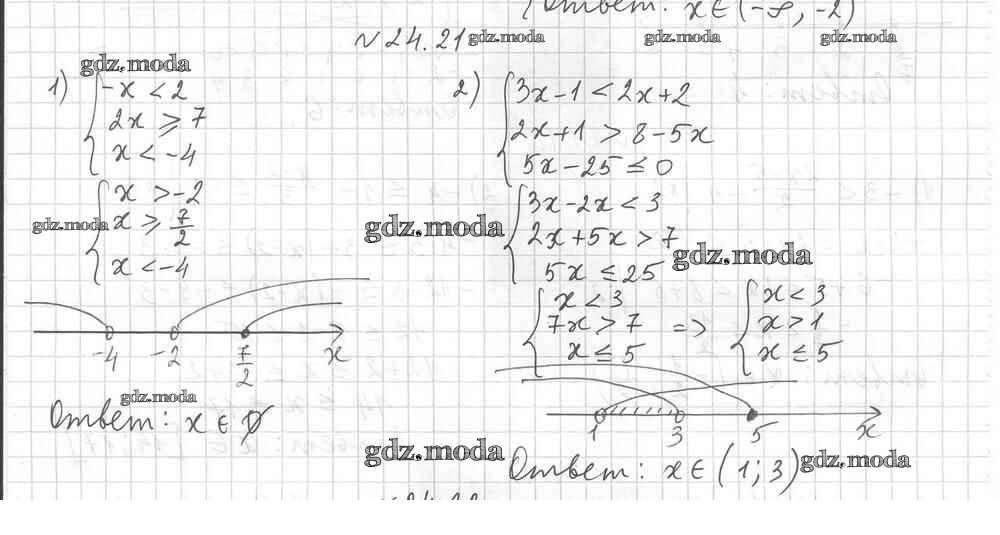 Ответ: x ∈ (-∞, -2)
№24.21
gdz.moda gdz.moda gdz.moda
gdz.moda
1) { -x < 2
2x ⩾ 7
x < -4
{ x > -2
x ⩾ 7/2
x < -4
gdz.moda
-4 -2 7/2 x
gdz.moda
Ответ: x ∈ ∅
2) { 3x-1 < 2x+2
2x+1 > 8-5x
5x-25 ≤ 0
{ 3x-2x < 3
2x+5x > 7
5x ≤ 25
gdz.moda
gdz.moda
{ x < 3
7x > 7
x ≤ 5
=> { x < 3
x > 1
x ≤ 5
1 3 5 x
gdz.moda
Ответ: x ∈ (1; 3)
gdz.moda